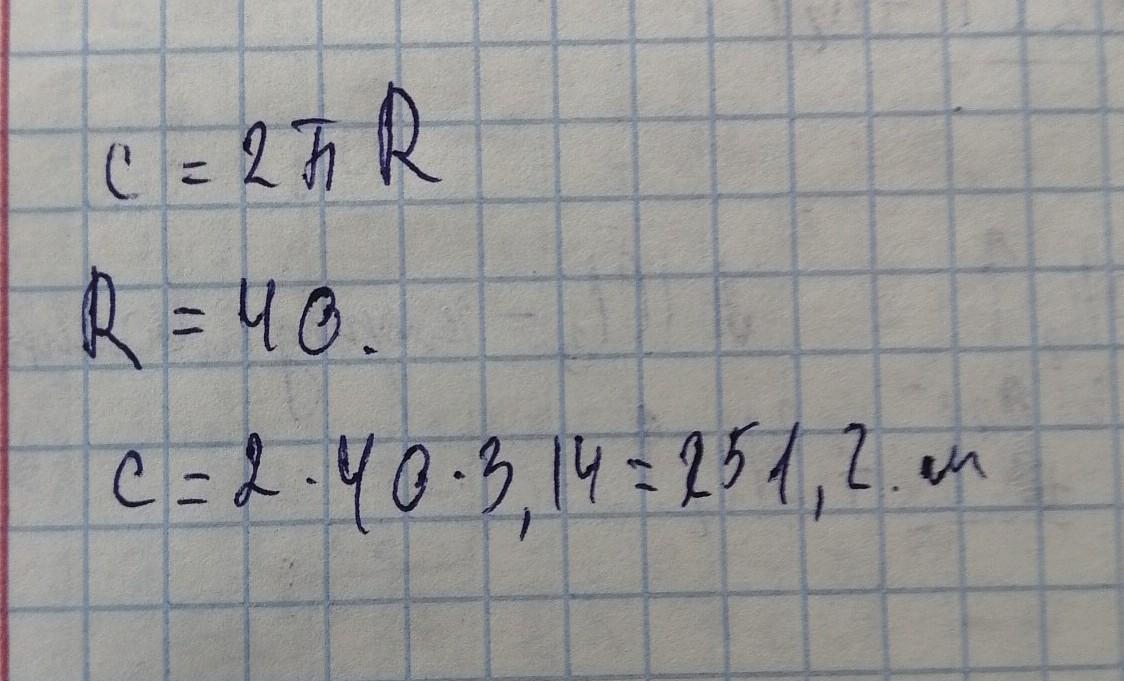 c = 2πR
R = 40.
c = 2·40·3,14 = 251,2. м